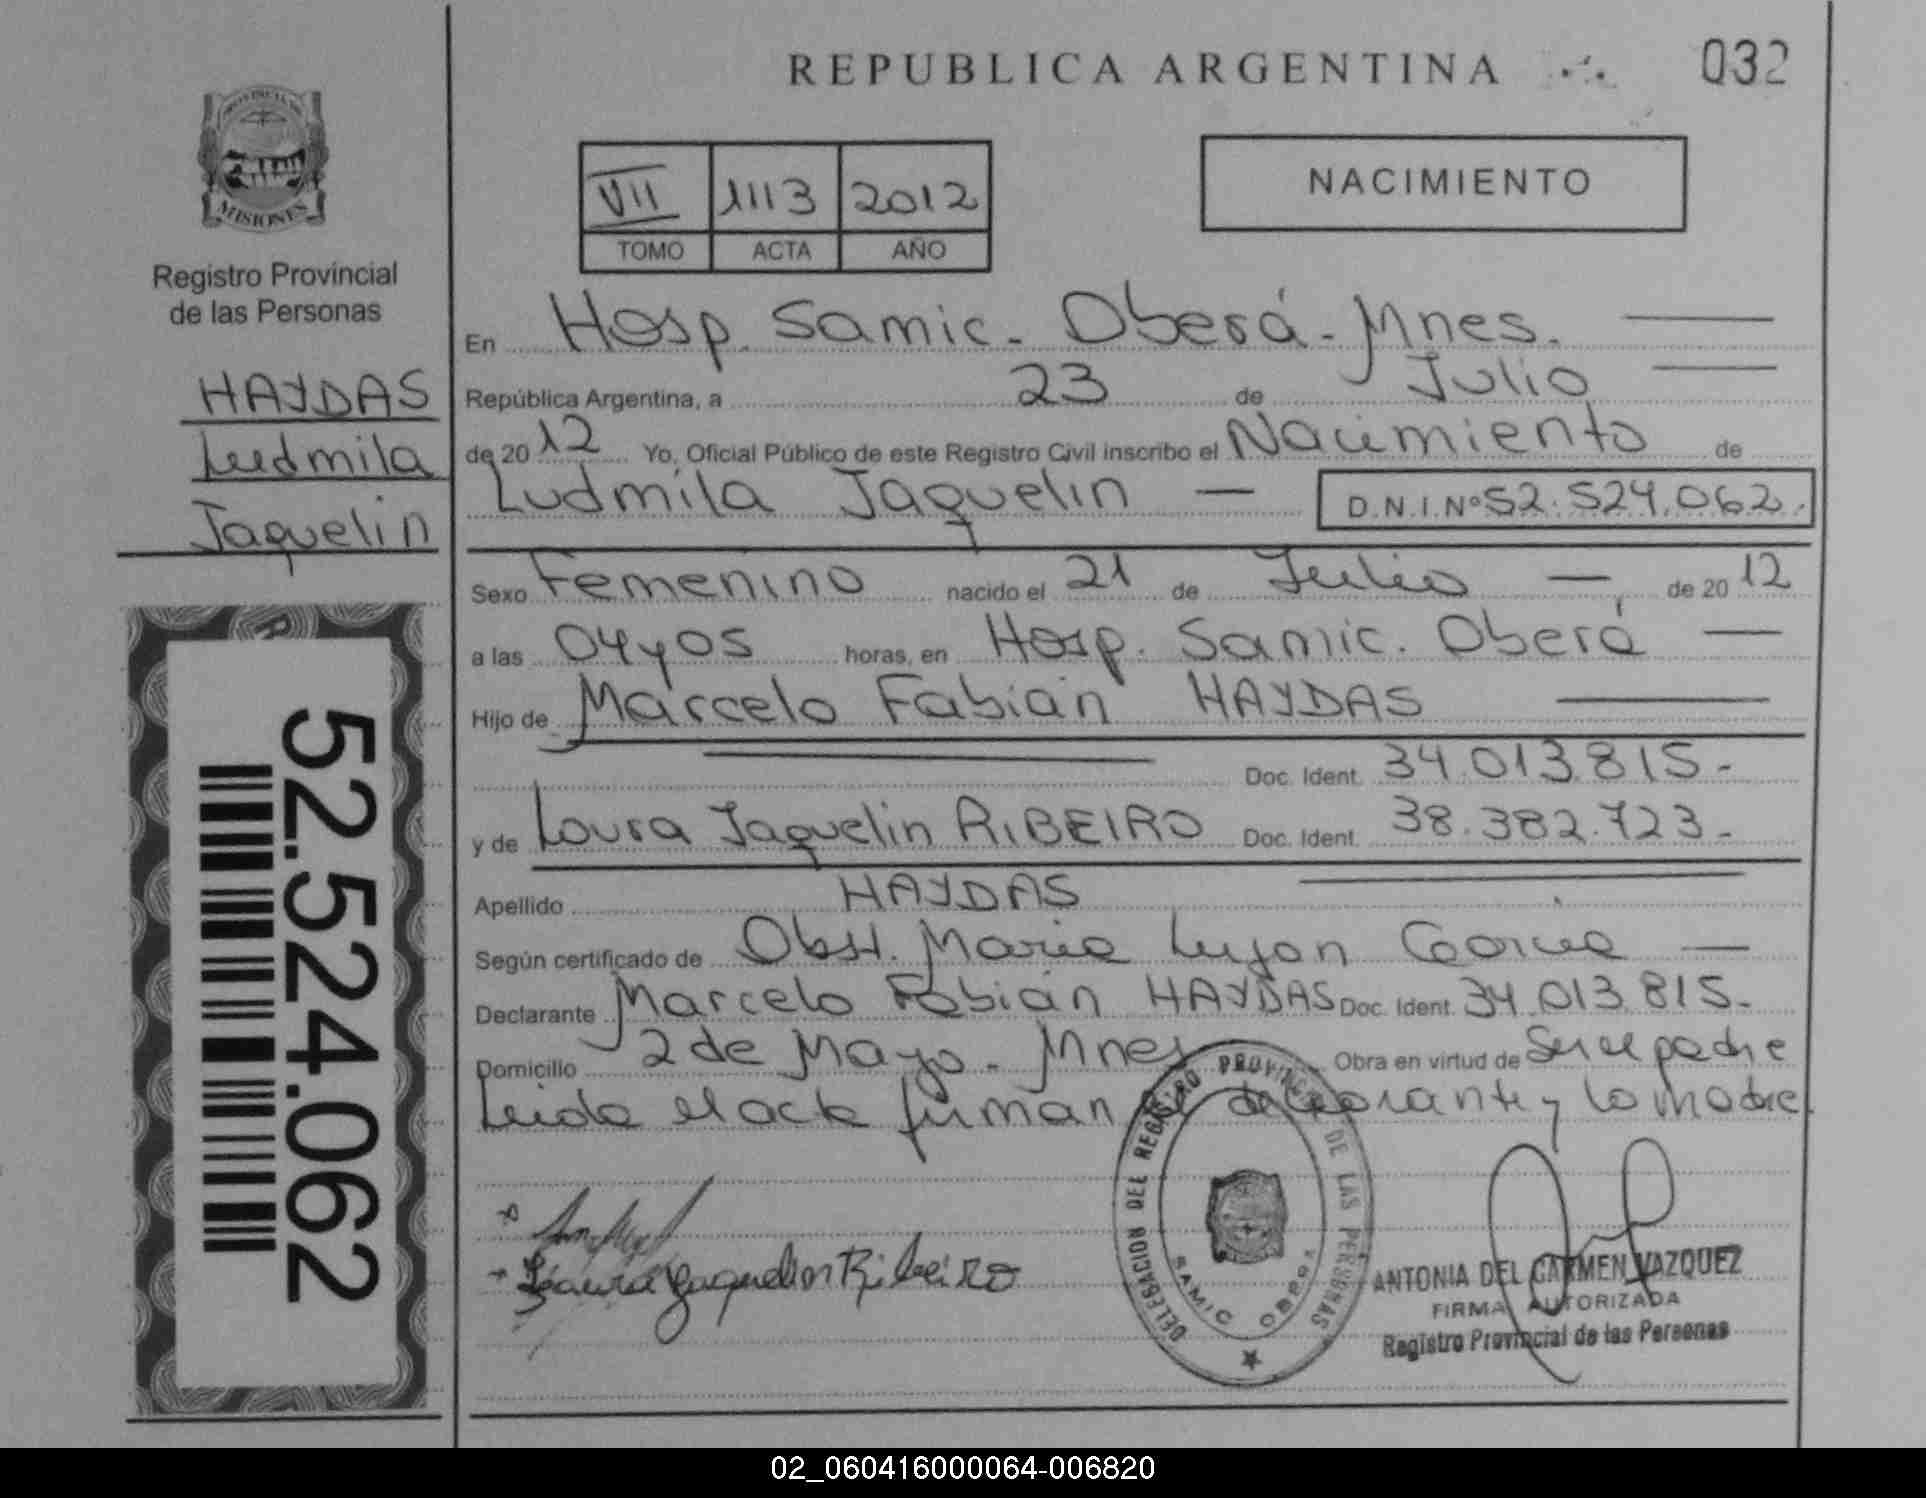 REPUBLICA ARGENTINA
032
PROVINCIA DE
MISIONES
Registro Provincial
de las Personas
HAYDAS
Ludmila
Jaquelin
52.524.062
VII 1113 2012
TOMO ACTA AÑO
NACIMIENTO
En Hosp. Samic. Oberá. Mnes.
República Argentina, a 23 de Julio
de 2012 Yo, Oficial Público de este Registro Civil inscribo el Nacimiento de
Ludmila Jaquelin — D.N.I.Nº 52.524.062.
Sexo Femenino nacido el 21 de Julio — de 2012
a las 04 y 05 horas, en Hosp. Samic. Oberá —
Hijo de Marcelo Fabián HAYDAS
Doc. Ident. 34.013.815.-
y de Laura Jaquelin RIBEIRO Doc. Ident. 38.382.723.-
Apellido HAYDAS
Según certificado de Obst. Maria Lujan Garcia —
Declarante Marcelo Fabián HAYDAS Doc. Ident. 34.013.815.-
Domicilio 2 de Mayo - Mnes Obra en virtud de Ser el padre
Leida el acta firman el declarante y la madre.
Laura Jaquelin Ribeiro
DELEGACION DEL REGISTRO PROVINCIAL DE LAS PERSONAS
SAMIC OBERA
ANTONIA DEL CARMEN VAZQUEZ
FIRMA AUTORIZADA
Registro Provincial de las Personas
02_060416000064-006820